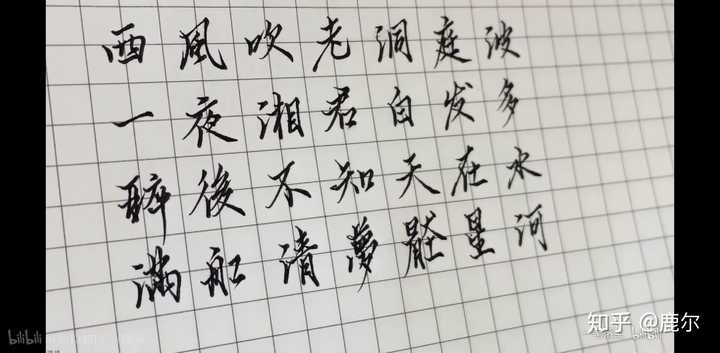 西風吹老洞庭波
一夜湘君白发多
醉後不知天在水
滿船清夢壓星河
bilibili
知乎 @鹿尔